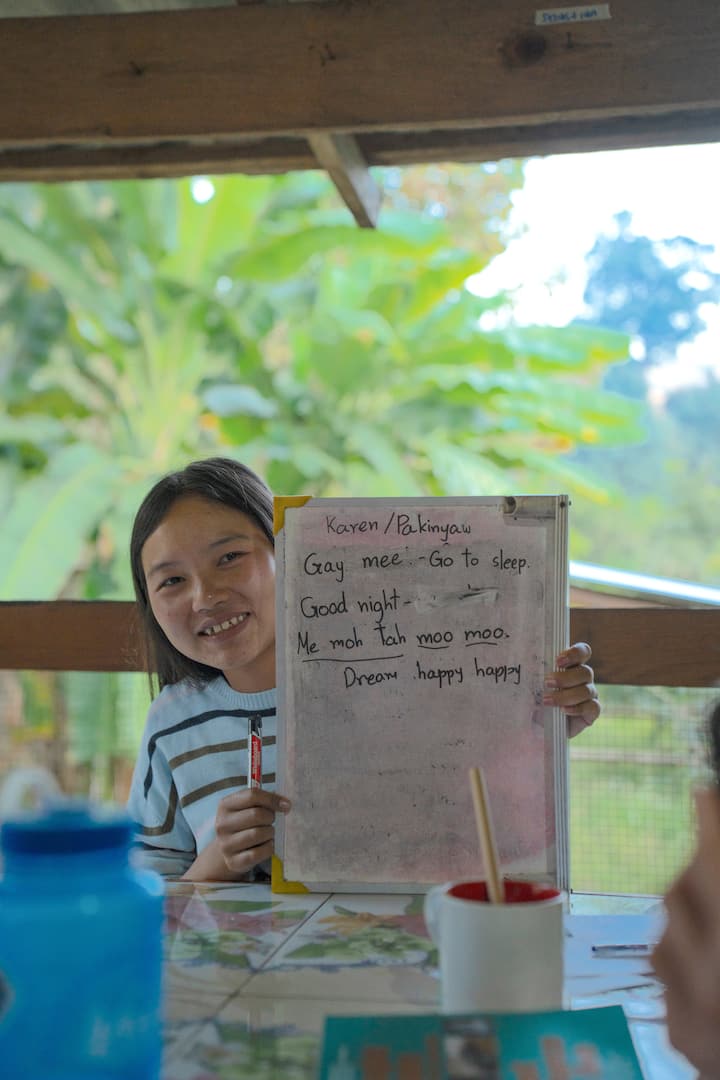 Karen/Pakinyaw
Gay mee - Go to sleep.
Good night -
Me moh tah moo moo.
Dream happy happy